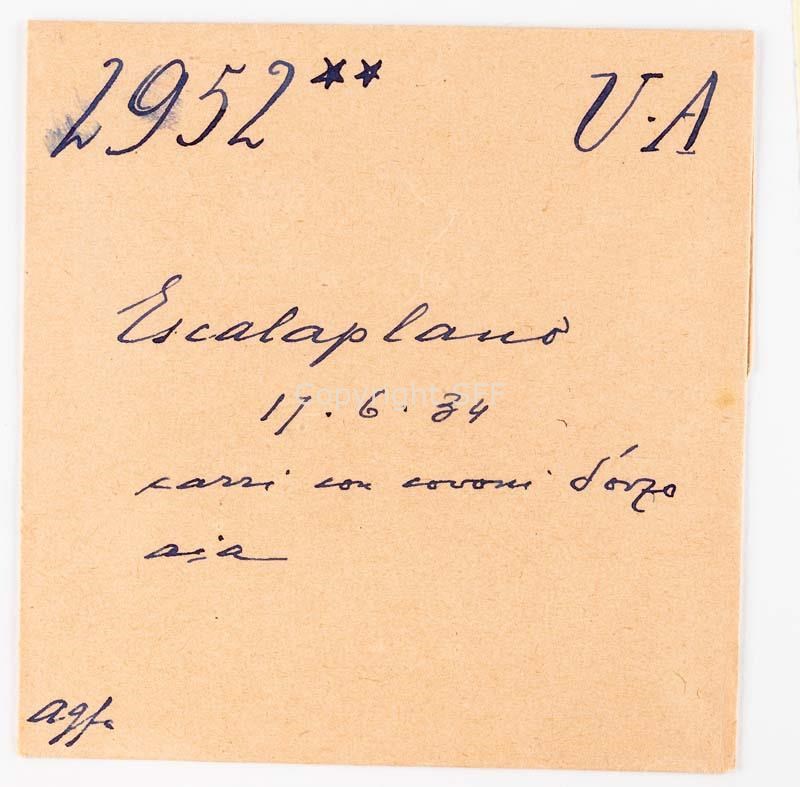 2952** V.A
Escalaplano
Copyright SFF
17.6.34
carri con covoni d'orzo
aia
agfa